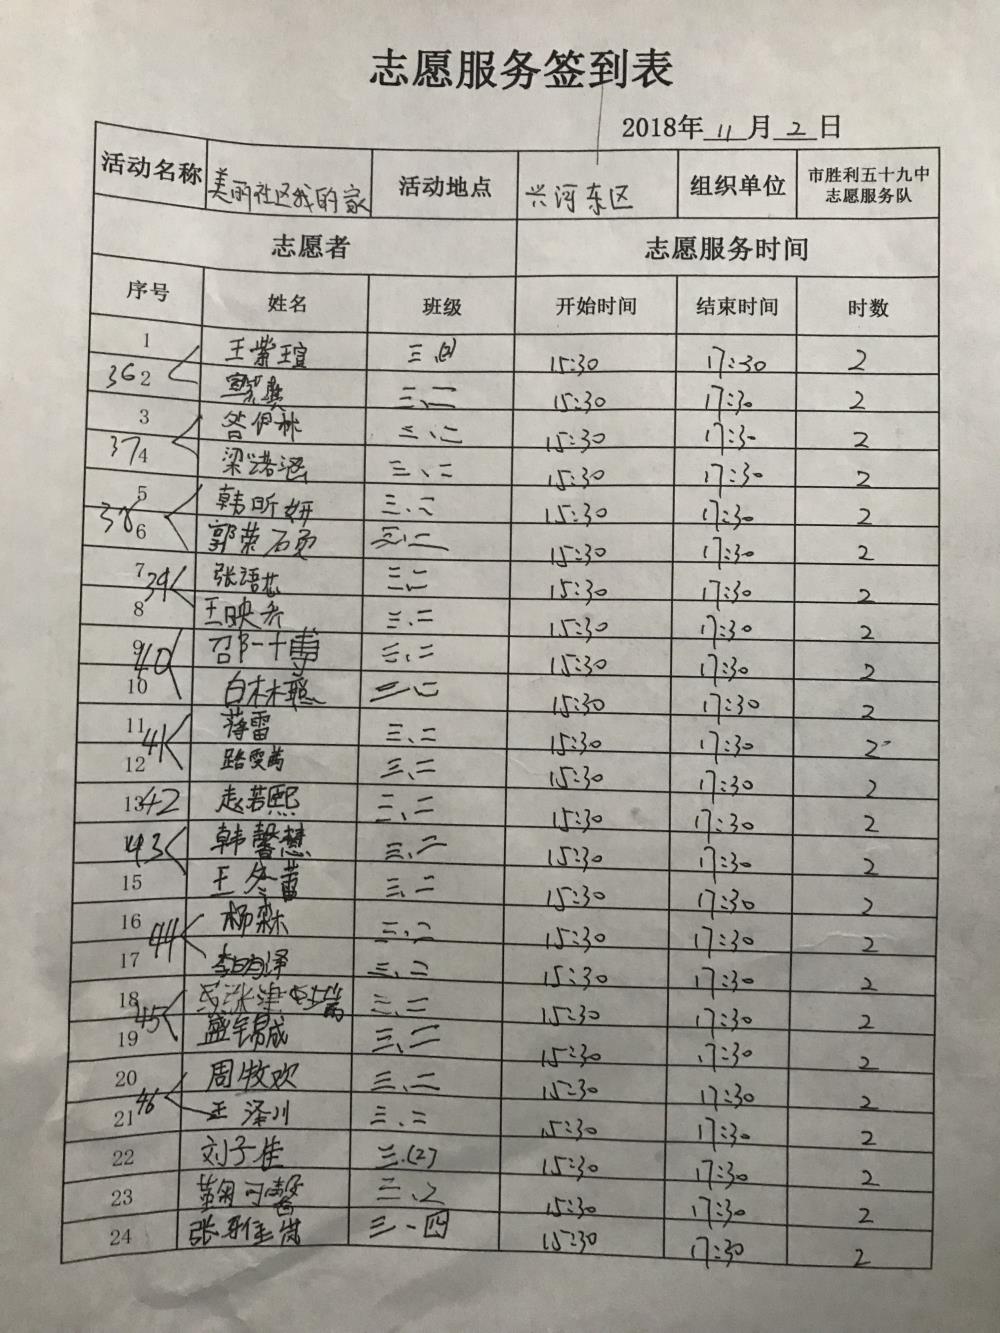 志愿服务签到表
2018年 11 月 2 日
活动名称 美丽社区我的家 活动地点 兴河东区 组织单位 市胜利五十九中
志愿服务队
志愿者 志愿服务时间
序号 姓名 班级 开始时间 结束时间 时数
1 王紫瑄 三 15:30 17:30 2
36 2 三、二 15:30 17:30 2
3 三、二 15:30 17:30 2
37 4 梁诺涵 三、二 15:30 17:30 2
5 韩昕妍 三、二 15:30 17:30 2
38 6 郭荣 三、二 15:30 17:30 2
7 39 张语芯 三、二 15:30 17:30 2
8 王映 三、二 15:30 17:30 2
9 40 邵一 三、二 15:30 17:30 2
10 白林 三、二 15:30 17:30 2
11 41 蒋雷 三、二 15:30 17:30 2
12 路雯 三、二 15:30 17:30 2
13 42 赵若熙 三、二 15:30 17:30 2
43 韩馨慧 三、二 15:30 17:30 2
15 王冬蕾 三、二 15:30 17:30 2
16 44 杨森 三、二 15:30 17:30 2
17 李明泽 三、二 15:30 17:30 2
18 45 三、二 15:30 17:30 2
19 盛锦成 三、二 15:30 17:30 2
20 周牧欢 三、二 15:30 17:30 2
21 46 王泽川 三、二 15:30 17:30 2
22 刘子佳 三.(2) 15:30 17:30 2
23 可馨 三、2 15:30 17:30 2
24 张雅 三、四 15:30 17:30 2